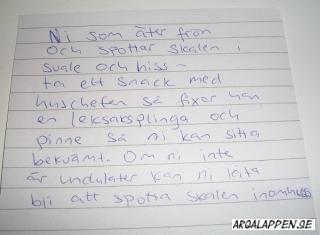 Ni som äter frön
och spottar skalen i
svale och hiss -
ta ett snack med
huschefen så fixar han
en leksaksplinga och
pinne så ni kan sitta
bekvämt. Om ni inte
är undulater kan ni skita
bli att spotta skalen inomhus
ARGALAPPEN.SE